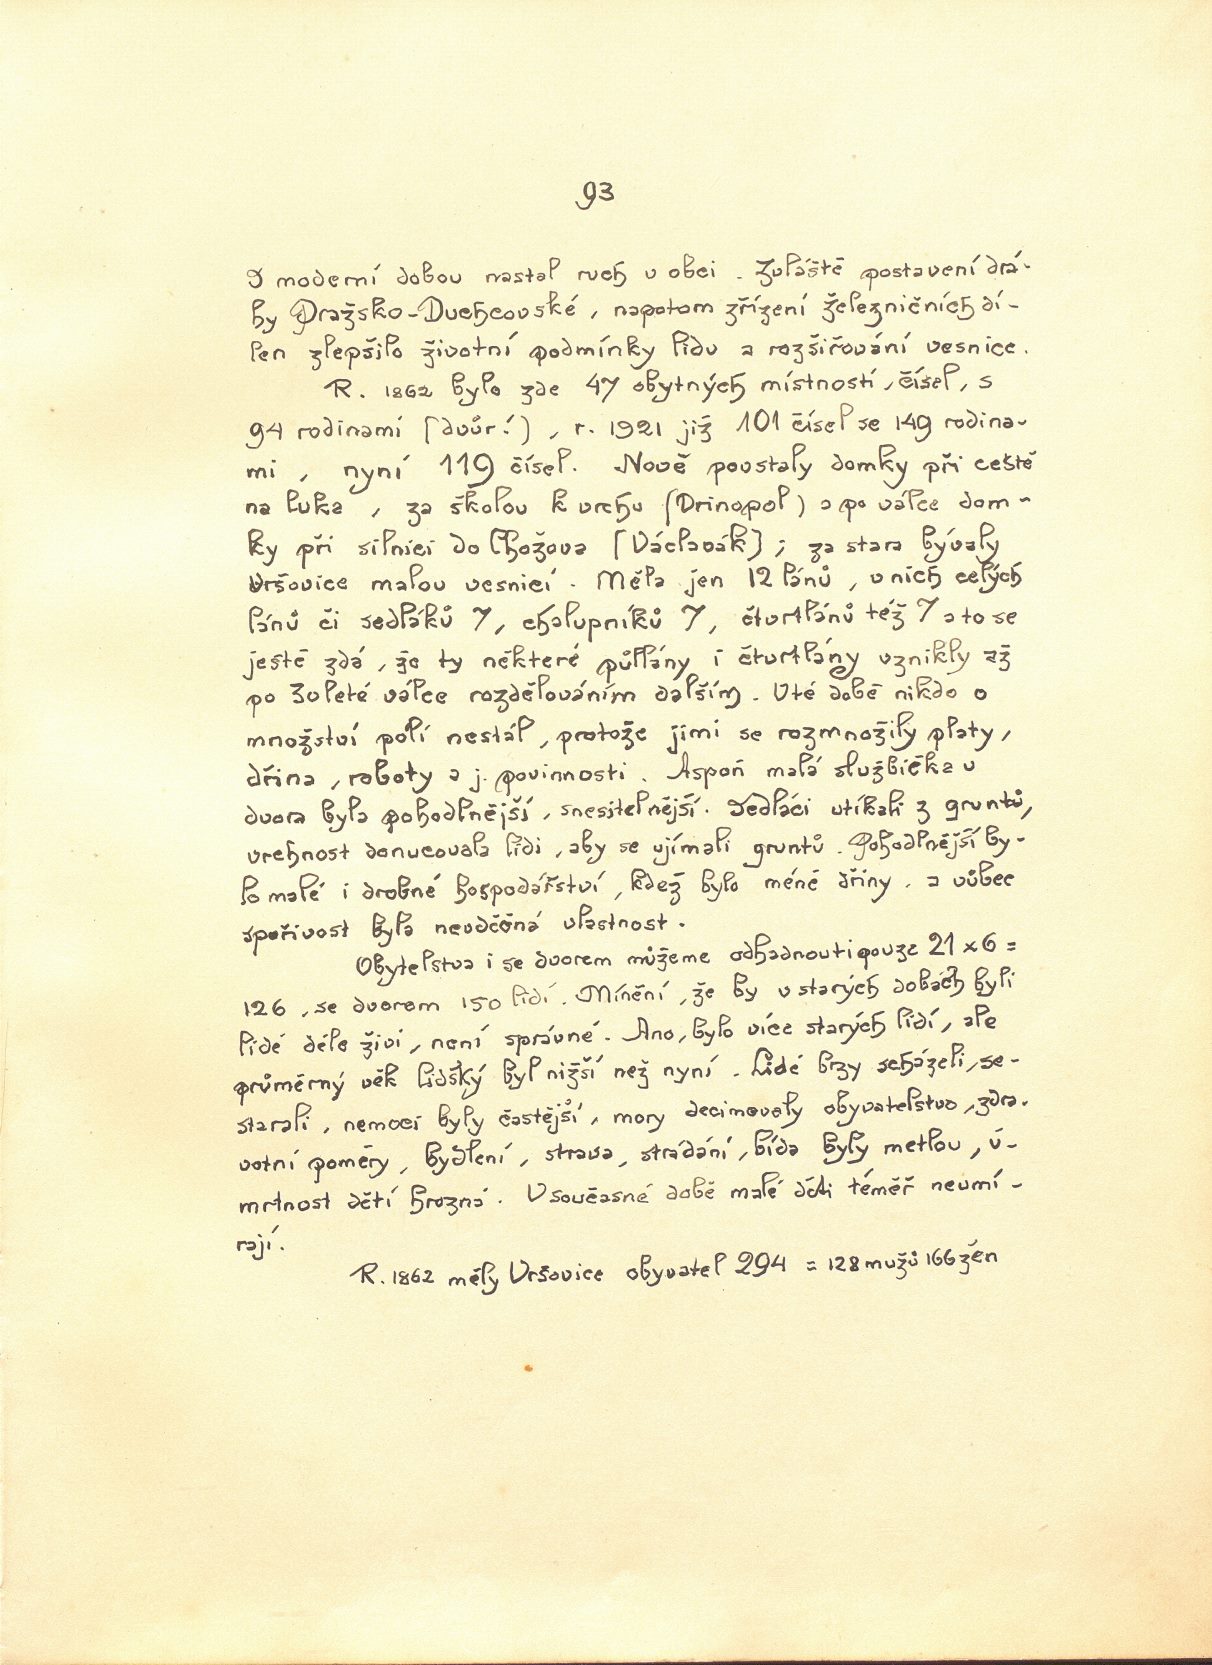 93
S moderní dobou nastal ruch v obci. Zvláště postavení drá-
hy Pražsko-Duchcovské, napotom zřízení železničních dí-
len zlepšilo životní podmínky lidu a rozšiřování vesnice.
R. 1862 bylo zde 47 obytných místností, čísel, s
94 rodinami (dvůr!), r. 1921 již 101 čísel se 149 rodina-
mi, nyní 119 čísel. Nově povstaly domky při cestě
na luka, za školou k vrchu (Drinopol) a po válce dom-
ky při silnici do Chožova (Václavák); za stara bývaly
Vršovice malou vesnicí. Měla jen 12 lánů, v nich celých
lánů či sedláků 7, chalupníků 7, čtvrtlánů též 7 a to se
ještě zdá, že ty některé půllány i čtvrtlány vznikly až
po 30leté válce rozdělováním dalším. V té době nikdo o
množství polí nestál, protože jimi se rozmnožily platy,
dřina, roboty a j. povinnosti. Aspoň malá služбička u
dvora byla pohodlnější, snesitelnější. Sedláci utíkali z gruntů,
vrchnost donucovala lidi, aby se ujímali gruntů. Pohodlnější by-
lo malé i drobné hospodářství, kdež bylo méně dřiny. a vůbec
spořivost byla nevděčná vlastnost.
Obytelstva i se dvorem můžeme odhadnouti pouze 21 x 6 =
126, se dvorem 150 lidí. Mínění, že by v starých dobách byli
lidé déle živi, není správné. Ano, bylo více starých lidí, ale
průměrný věk lidský byl nižší než nyní. Lidé brzy scházeli, se-
starali, nemoci byly častější, mory decimovaly obyvatelstvo, zdra-
votní poměry, bydlení, strava, strádání, bída byly metlou, ú-
mrtnost dětí hrozná. V současné době malé děti téměř neumí-
rají.
R. 1862 měly Vršovice obyvatel 294 = 128 mužů 166 žen